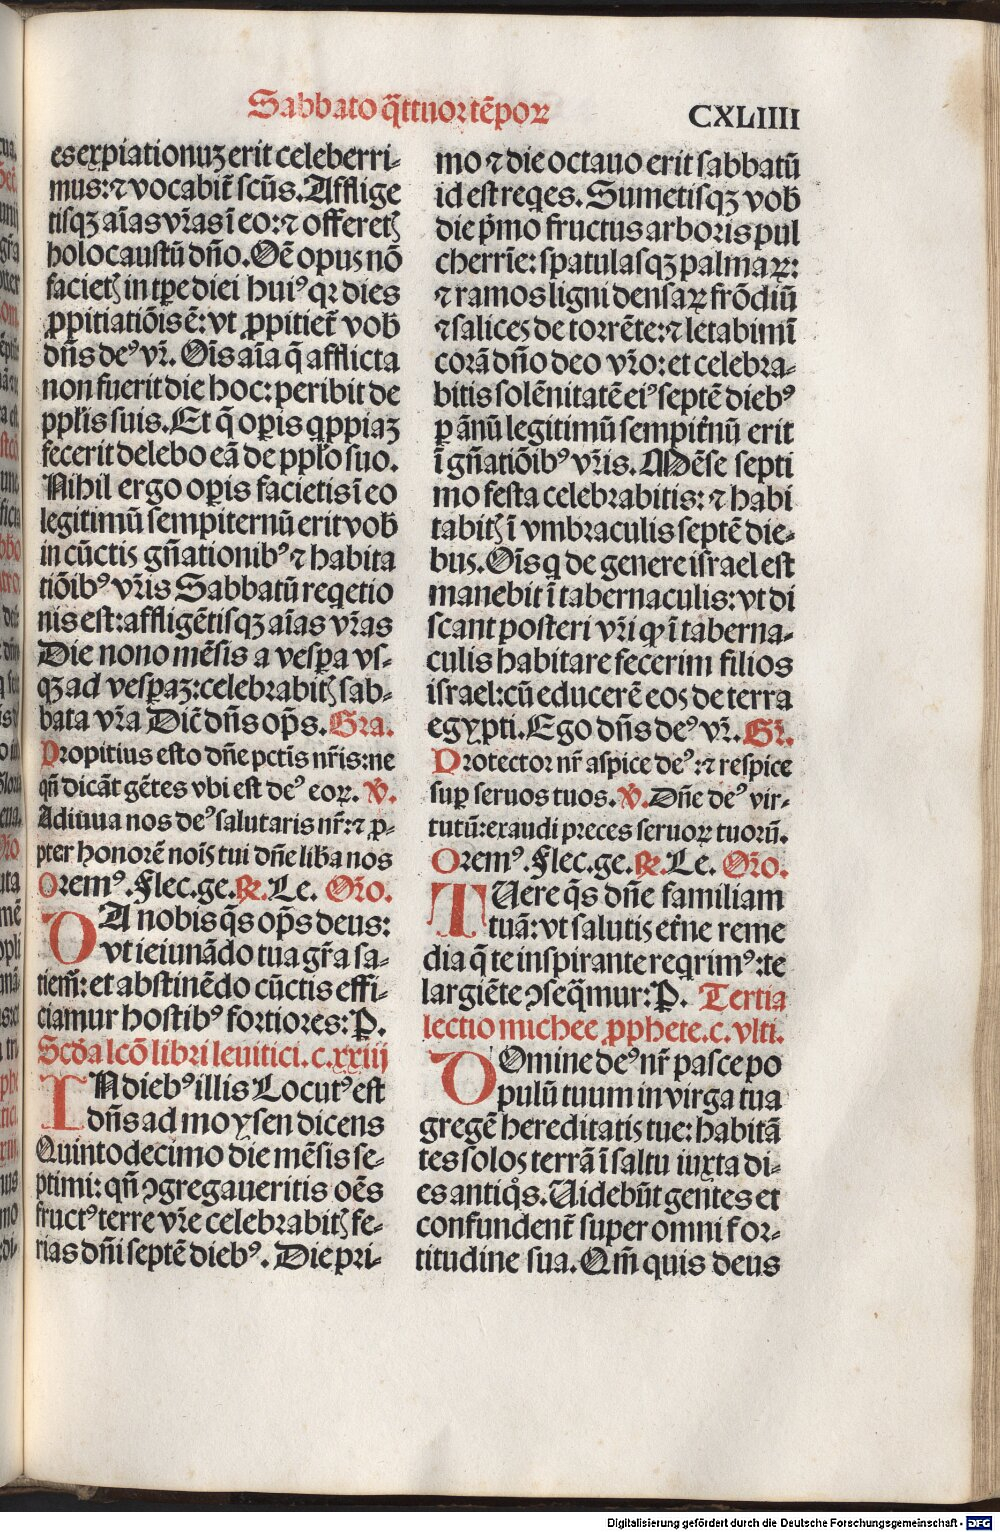 Sabbato q̈ttuor tēpoꝝ
CXLIIII
es expiationuꝫ erit celeberri-
mus: ⁊ vocabit̄ scūs. Afflige
tisqꝫ aīas vr̄as ī eo: ⁊ offeretꝭ
holocaustū dn̄o. Oē opus nō
facietꝭ in tꝑe diei huiꝰ qꝛ dies
ꝓpitiatiōis ē: vt ꝓpitiet̄ vob̄
dn̄s deꝰ vr̄. Oīs aīa q̄ afflicta
non fuerit die hoc: peribit de
ppl̄is suis. Et q̄ oꝑis qppiaꝫ
fecerit delebo eā de ppl̄o suo.
Nihil ergo oꝑis facietis ī eo
legitimū sempiternū erit vob̄
in cūctis gn̄ationibꝰ ⁊ habita
tiōibꝰ vr̄is Sabbatū reqetio
nis est: affligētisqꝫ aīas vr̄as
Die nono mēsis a vespa vs-
qꝫ ad vespaꝫ: celebrabitꝭ sab-
bata vr̄a Dic̄ dn̄s op̄s. Gra.
Propitius esto dn̄e pctīs nr̄is: ne
qn̄ dicāt gētes vbi est deꝰ eoꝝ. ℣.
Adiuua nos deꝰ salutaris nr̄: ⁊ ꝓ-
pter honorē nois̄ tui dn̄e liba nos
Oremꝰ. Flec. ge. ℞. Le. Or̄o.
DA nobis q̄s op̄s deus:
vt ieiunādo tua gr̄a sa-
tiem̄: et abstinēdo cūctis effi-
ciamur hostibꝰ fortiores: P.
Scd̄a lcō libri leuitici. c. xxiij
IN diebꝰ illis Locutꝰ est
dn̄s ad moysen dicens
Quintodecimo die mēsis se-
ptimi: qn̄ ꝯgregaueritis oēs
fructꝰ terre vr̄e celebrabitꝭ fe-
rias dn̄i septē diebꝰ. Die pri-
mo ⁊ die octauo erit sabbatū
id est reqes. Sumetisqꝫ vob̄
die p̄mo fructus arboris pul
cherrīe: spatulasqꝫ palmaꝝ:
⁊ ramos ligni densaꝝ frōdiū
⁊ salices de torrēte: ⁊ letabimī
corā dn̄o deo vr̄o: et celebra-
bitis solēnitatē eiꝰ septē diebꝰ
ꝑ ānū legitimū sempit̄nū erit
ī gn̄atiōibꝰ vr̄is. Mēse septi
mo festa celebrabitis: ⁊ habi
tabitꝭ ī vmbraculis septē die-
bus. Oīs q de genere israel est
manebit ī tabernaculis: vt di
scant posteri vr̄i ꝙ ī taberna-
culis habitare fecerim filios
israel: cū educerē eos de terra
egypti. Ego dn̄s deꝰ vr̄. Gr̄.
Protector nr̄ aspice deꝰ: ⁊ respice
suꝑ seruos tuos. ℣. Dn̄e deꝰ vir-
tutū: exaudi preces seruoꝝ tuorū.
Oremꝰ. Flec. ge. ℞. Le. Or̄o.
TUere q̄s dn̄e familiam
tuā: vt salutis et̄ne reme
dia q̄ te inspirante reqrimꝰ: te
largiēte ꝯseq̄mur: P. Tertia
lectio michee ꝓphete. c. vlti.
DOmine deꝰ nr̄ pasce po
pulū tuum in virga tua
gregē hereditatis tue: habitā
tes solos terrā ī saltu iuxta di-
es antiqͦs. Uidebūt gentes et
confundent̄ super omni for-
titudine sua. Qm̄ quis deus
Digitalisierung gefördert durch die Deutsche Forschungsgemeinschaft - DFG